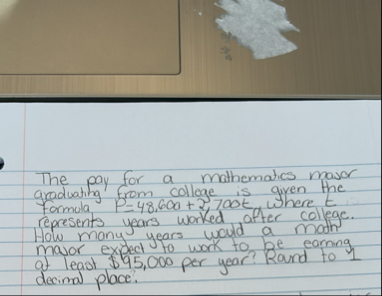 The pay for a mathematics major
graduating from college is given the
formula P=48,600+2,700t, where t
represents years worked after college.
How many years would a math
major expect to work to be earning
at least $95,000 per year? Round to 1
decimal place.